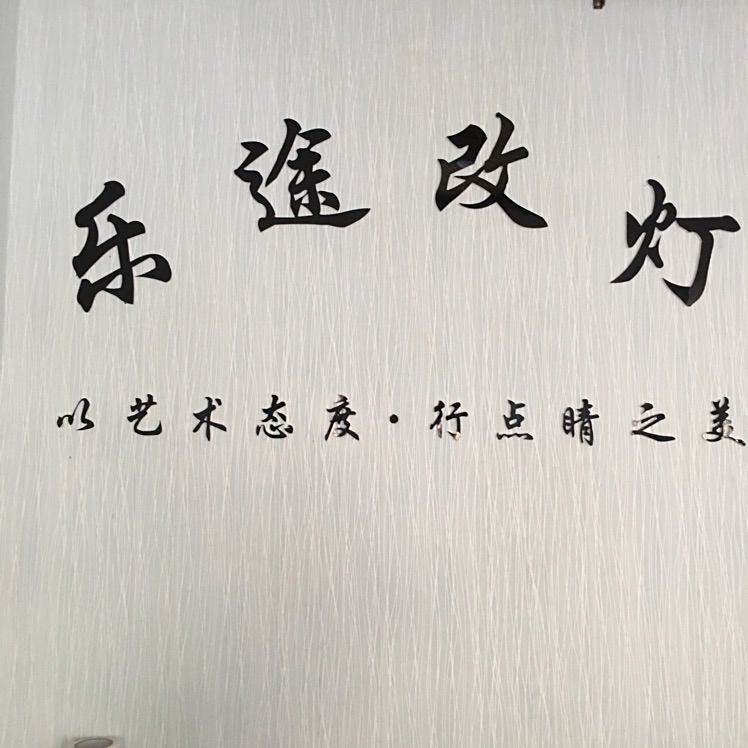 乐途改灯
以艺术态度·行点睛之美